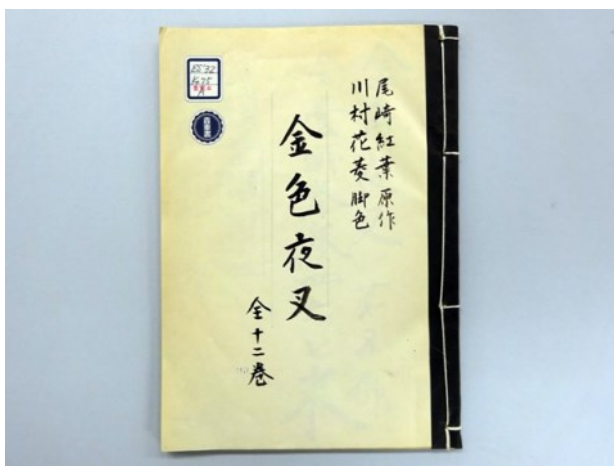 尾崎紅葉原作
川村花菱脚色
金色夜叉
全十二巻